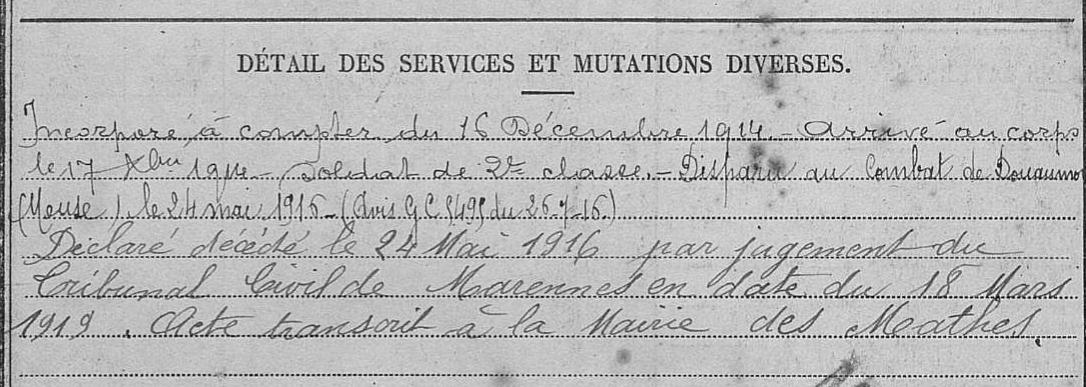 DÉTAIL DES SERVICES ET MUTATIONS DIVERSES.
Incorporé à compter du 16 Décembre 1914. - Arrivé au corps
le 17 Xbre 1914 - Soldat de 2e classe. - Disparu au Combat de Douaumon
(Meuse) le 24 mai 1916 - (Avis G C 5495 du 26-7-16)
Déclaré décédé le 24 Mai 1916 par jugement du
Tribunal Civil de Marennes en date du 18 Mars
1919. Acte transcrit à la Mairie des Mathes.